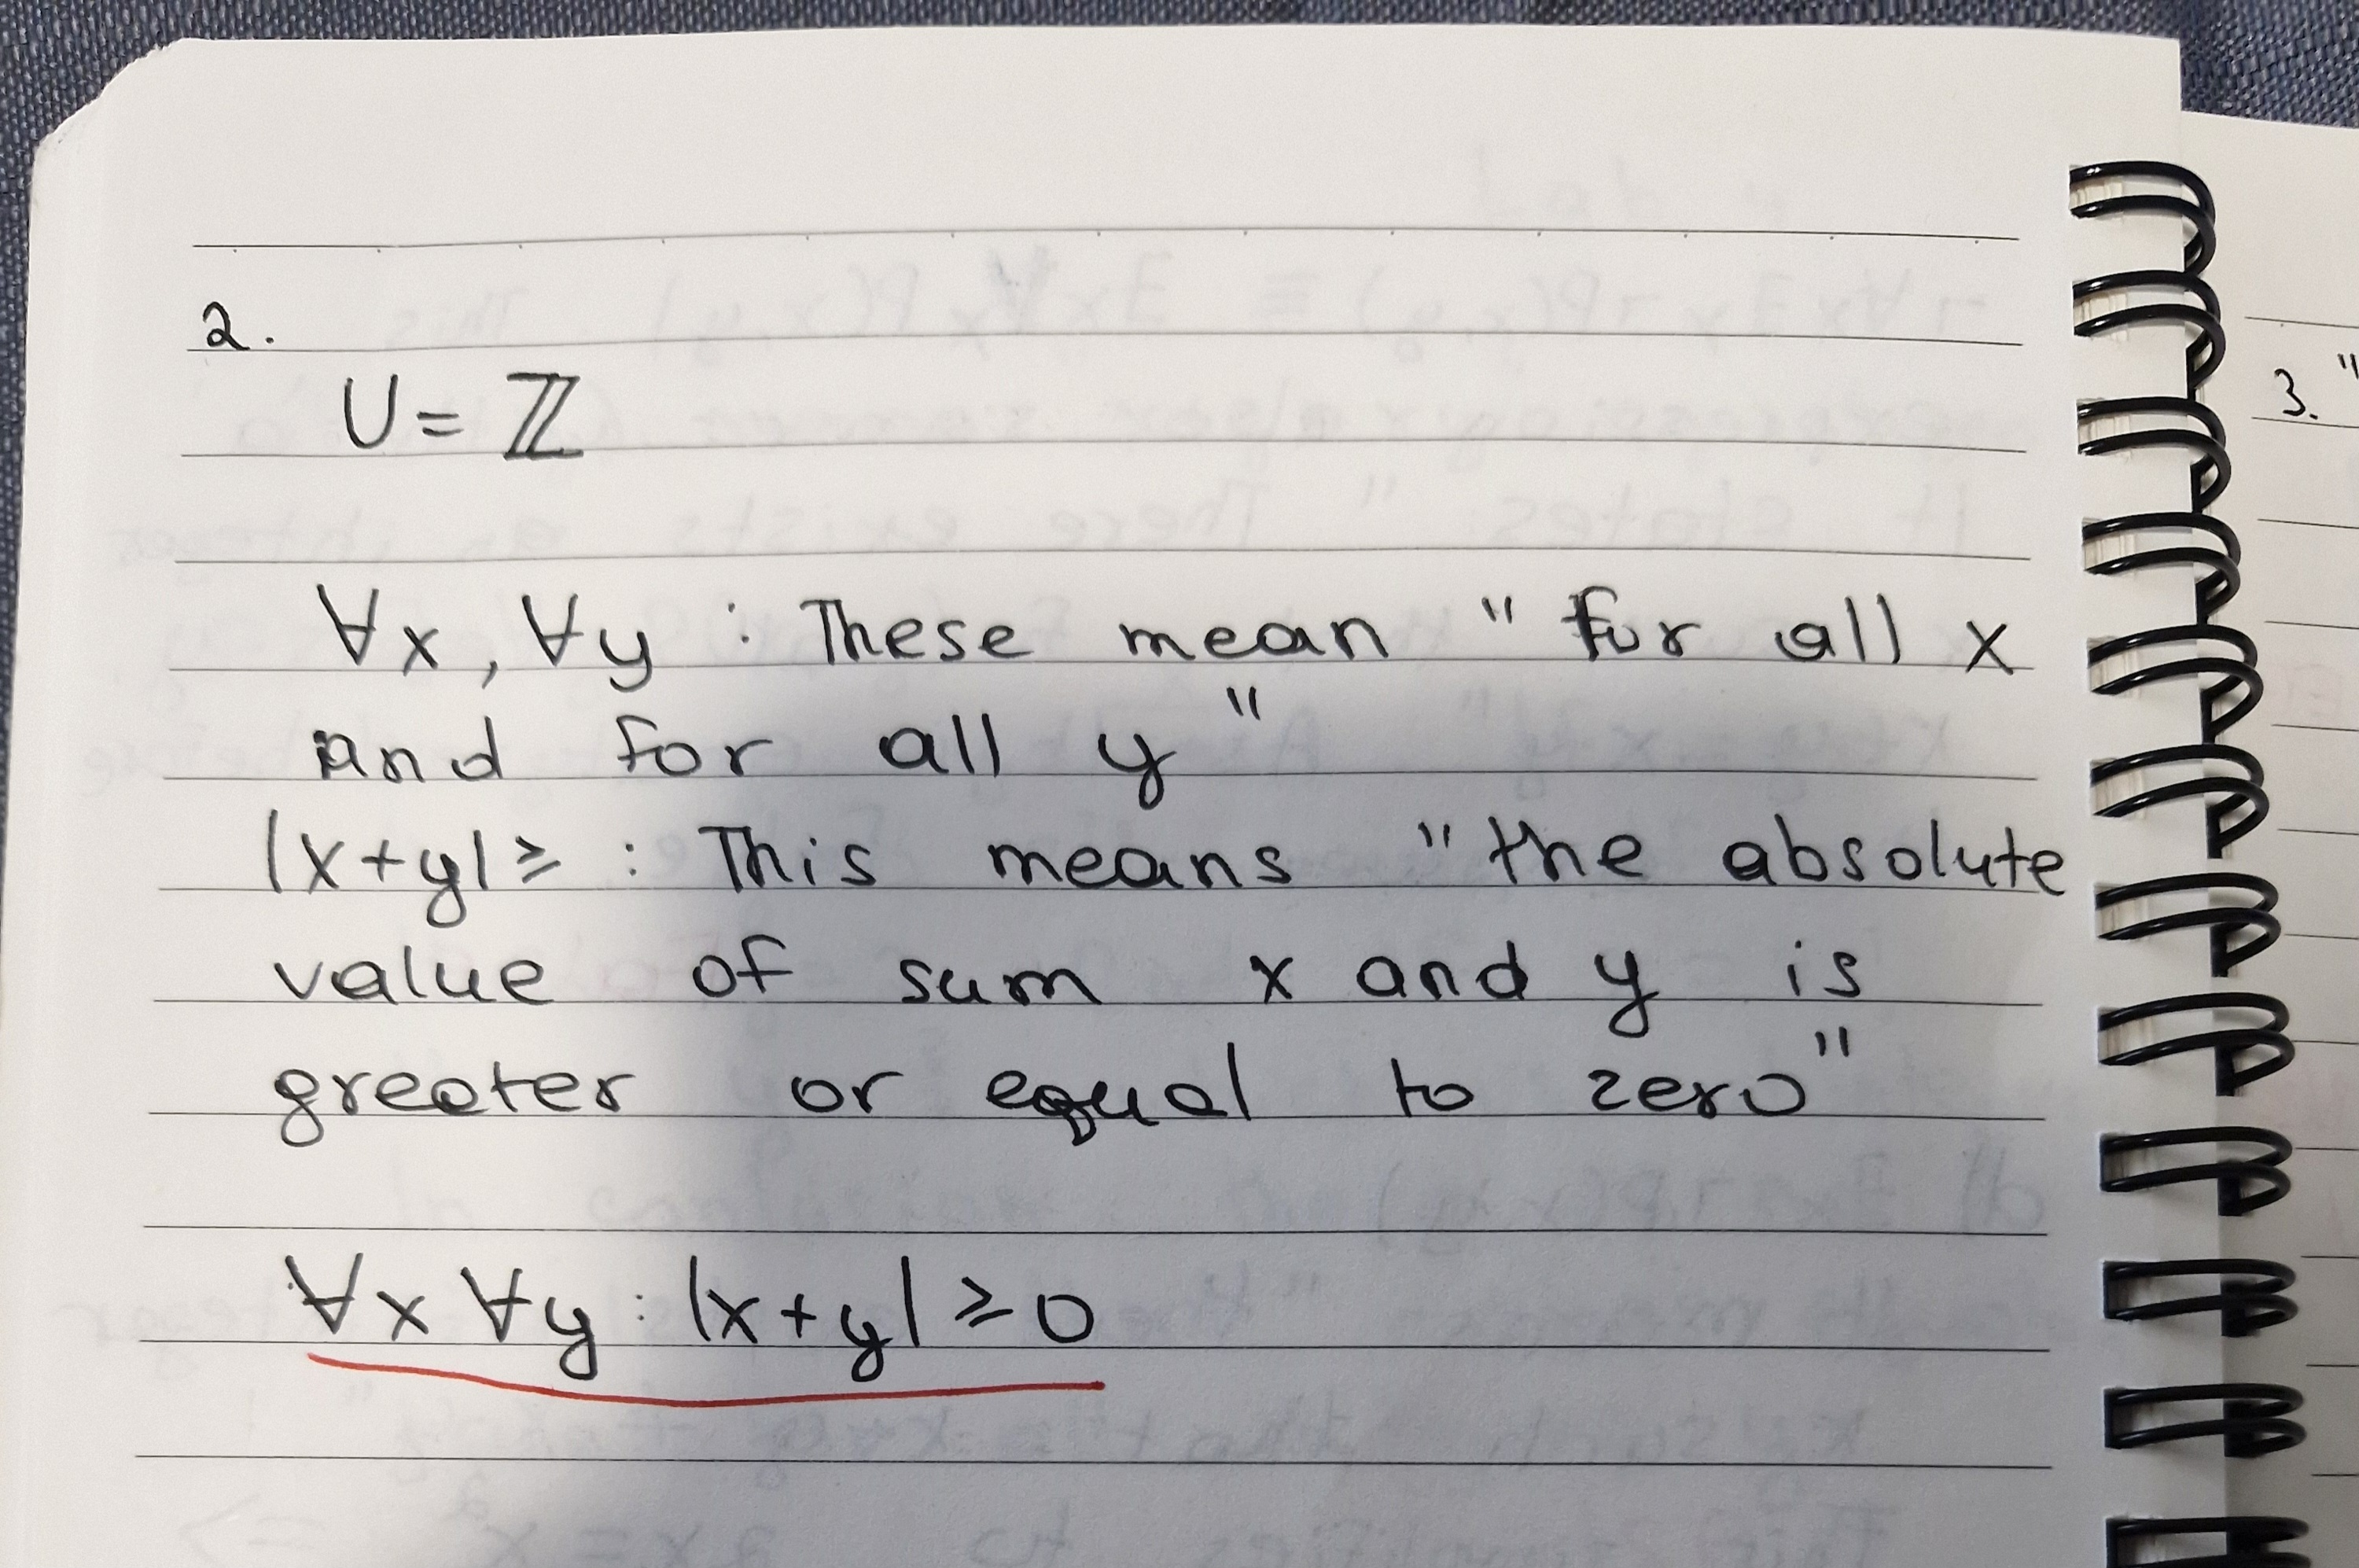 2.
U = ℤ
∀x, ∀y : These mean " for all x
and for all y "
|x+y| ≥ : This means " the absolute
value of sum x and y is
greater or equal to zero"
∀x ∀y : |x+y| ≥ 0
3. "